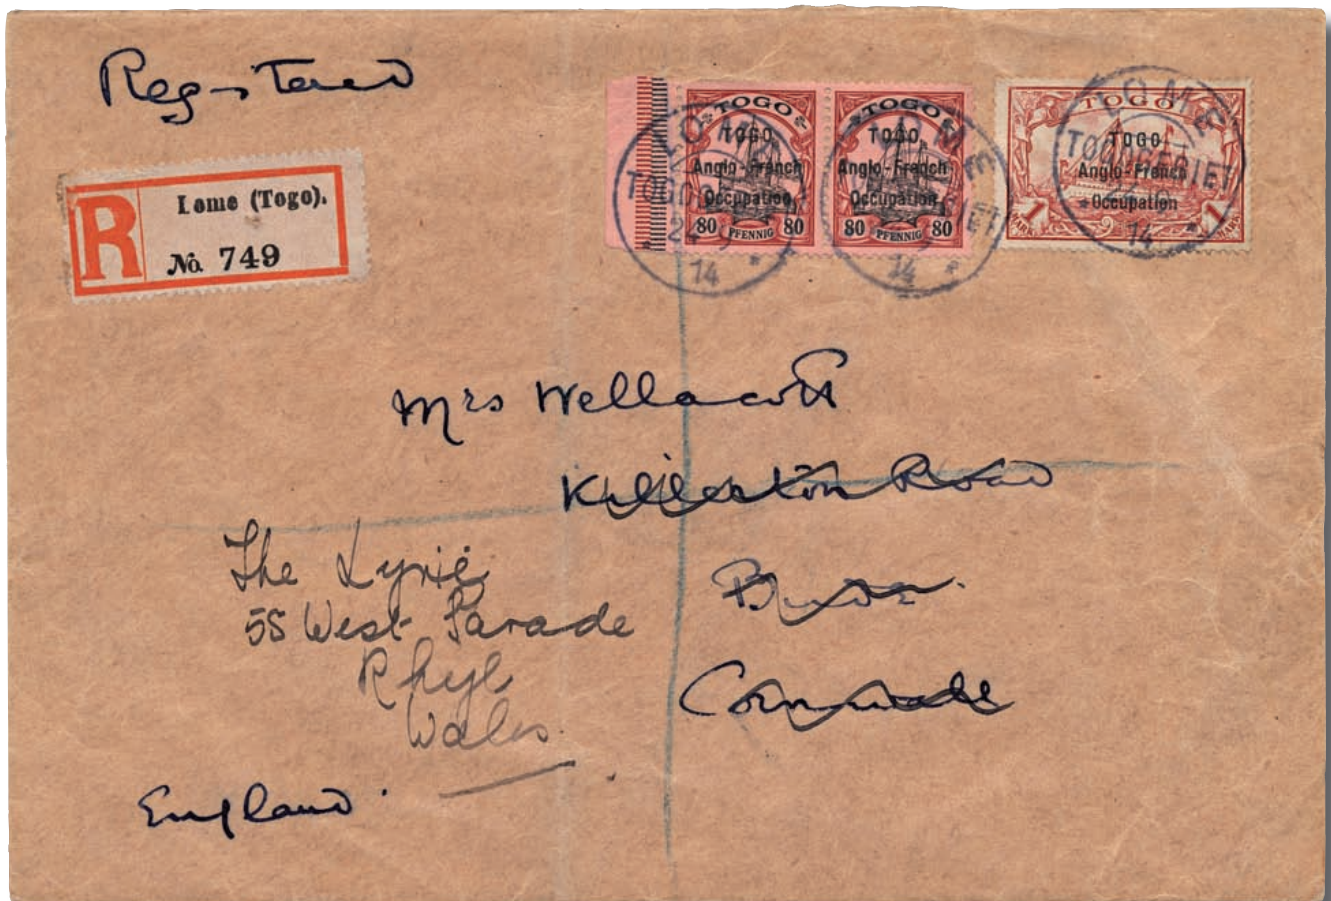 Registered
R
Lome (Togo).
No. 749
TOGO
TOGO
Anglo-French
Occupation
80 PFENNIG 80
TOGO
TOGO
Anglo-French
Occupation
80 PFENNIG 80
TOGO
TOGO
Anglo-French
Occupation
1 MARK 1 MARK
LOME
TOGOGEBIET
14
LOME
14
LOME
TOGOGEBIET
14
Mrs Wellacott
Killerton Road
Bude
Cornwall
The Lyric
55 West Parade
Rhyl
Wales.
England.